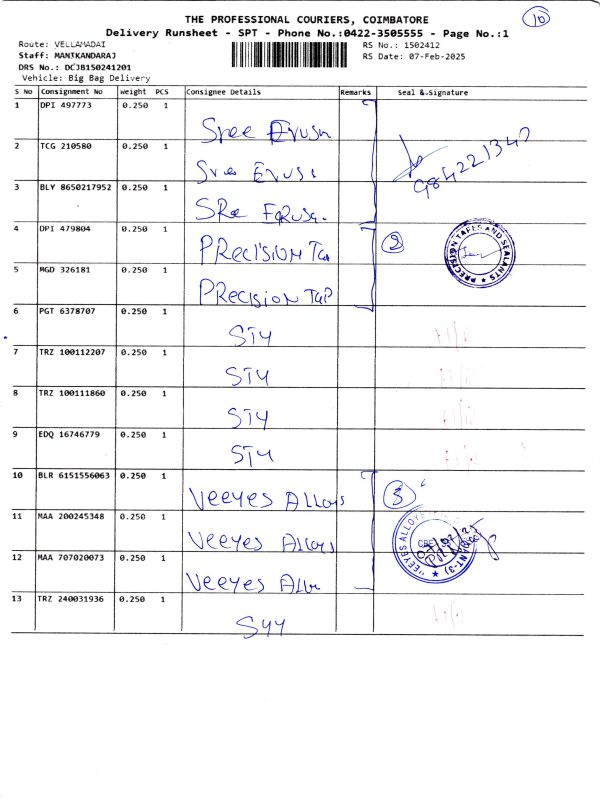 10
THE PROFESSIONAL COURIERS, COIMBATORE
Delivery Runsheet - SPT - Phone No.:0422-3505555 - Page No.:1
Route: VELLAMADAI
Staff: MANIKANDARAJ
DRS No.: DCJB150241201
Vehicle: Big Bag Delivery
RS No.: 1502412
RS Date: 07-Feb-2025
S No Consignment No Weight PCS Consignee Details Remarks Seal & Signature
1 DPI 497773 0.250 1 Sree
2 TCG 210580 0.250 1 Sree
3 BLY 8650217952 0.250 1 SRee
4 DPI 479804 0.250 1 PRecisioN 2
PRECISION TAPES AND SEALANTS
5 MGD 326181 0.250 1 PRecisioN TaP
6 PGT 6378707 0.250 1
7 TRZ 100112207 0.250 1
8 TRZ 100111860 0.250 1
9 EDQ 16746779 0.250 1
10 BLR 6151556063 0.250 1 Veeyes Alloys 3
11 MAA 200245348 0.250 1 Veeyes Alloys
VEEYES ALLOYS
12 MAA 707020073 0.250 1 Veeyes
13 TRZ 240031936 0.250 1